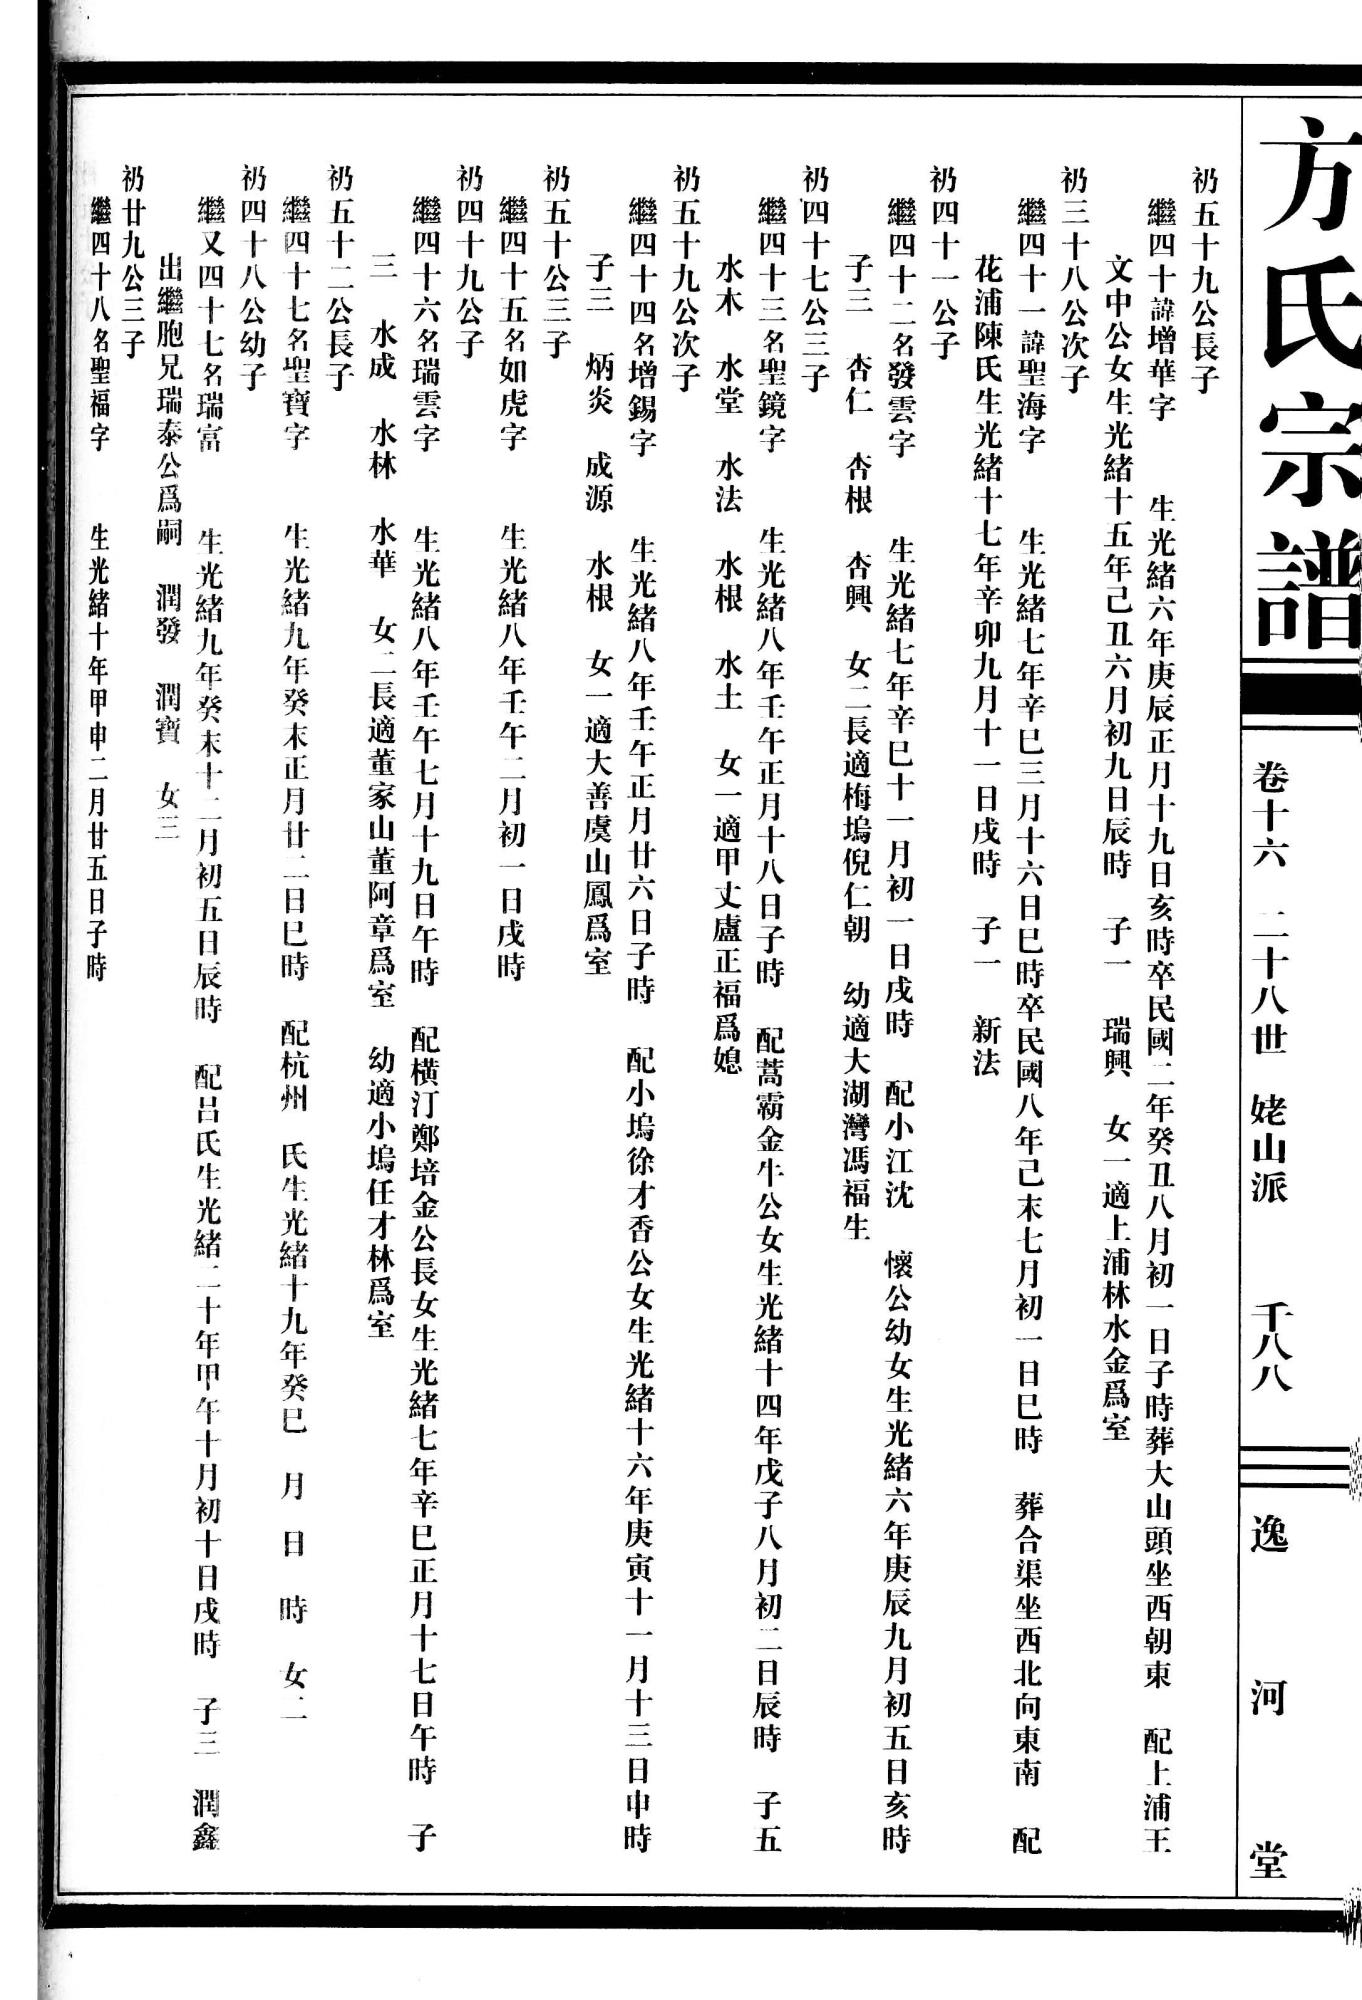 方氏宗譜
卷十六　二十八世　姥山派　千八八
逸河堂
礽五十九公長子
繼四十諱增華字　生光緒六年庚辰正月十九日亥時卒民國二年癸丑八月初一日子時葬大山頭坐西朝東　配上浦王
文中公女生光緒十五年己丑六月初九日辰時　子一　瑞興　女一適上浦林水金爲室
礽三十八公次子
繼四十一諱聖海字　生光緒七年辛巳三月十六日巳時卒民國八年己未七月初一日巳時　葬合渠坐西北向東南　配
花浦陳氏生光緒十七年辛卯九月十一日戌時　子一　新法
礽四十一公子
繼四十二名發雲字　生光緒七年辛巳十一月初一日戌時　配小江沈　懷公幼女生光緒六年庚辰九月初五日亥時
子三　杏仁　杏根　杏興　女二長適梅塢倪仁朝　幼適大湖灣馮福生
礽四十七公三子
繼四十三名聖鏡字　生光緒八年壬午正月十八日子時　配蒿霸金牛公女生光緒十四年戊子八月初二日辰時　子五
水木　水堂　水法　水根　水土　女一適甲丈盧正福爲媳
礽五十九公次子
繼四十四名增錫字　生光緒八年壬午正月廿六日子時　配小塢徐才香公女生光緒十六年庚寅十一月十三日申時
子三　炳炎　成源　水根　女一適大善虞山鳳爲室
礽五十公三子
繼四十五名如虎字　生光緒八年壬午二月初一日戌時
礽四十九公子
繼四十六名瑞雲字　生光緒八年壬午七月十九日午時　配橫汀鄭培金公長女生光緒七年辛巳正月十七日午時　子
三　水成　水林　水華　女二長適董家山董阿章爲室　幼適小塢任才林爲室
礽五十二公長子
繼四十七名聖寶字　生光緒九年癸未正月廿二日巳時　配杭州　氏生光緒十九年癸巳　月　日　時　女二
礽四十八公幼子
繼又四十七名瑞富　生光緒九年癸未十二月初五日辰時　配呂氏生光緒二十年甲午十月初十日戌時　子三　潤鑫
出繼胞兄瑞泰公爲嗣　潤發　潤寶　女三
礽廿九公三子
繼四十八名聖福字　生光緒十年甲申二月廿五日子時